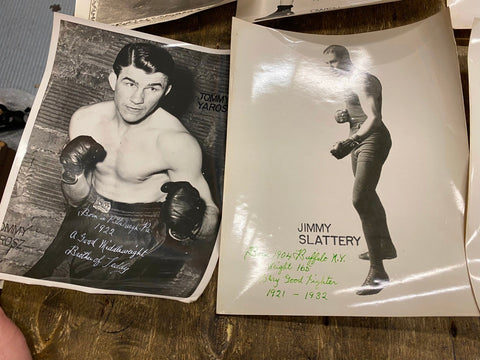 TOMMY
YAROSZ
TOMMY
Born in Pittsburgh Pa
1922
A Good Middleweight
Brother of Teddy
JIMMY
SLATTERY
Born 1904 Buffalo N.Y.
Weight 160
Very Good Fighter
1921 - 1932